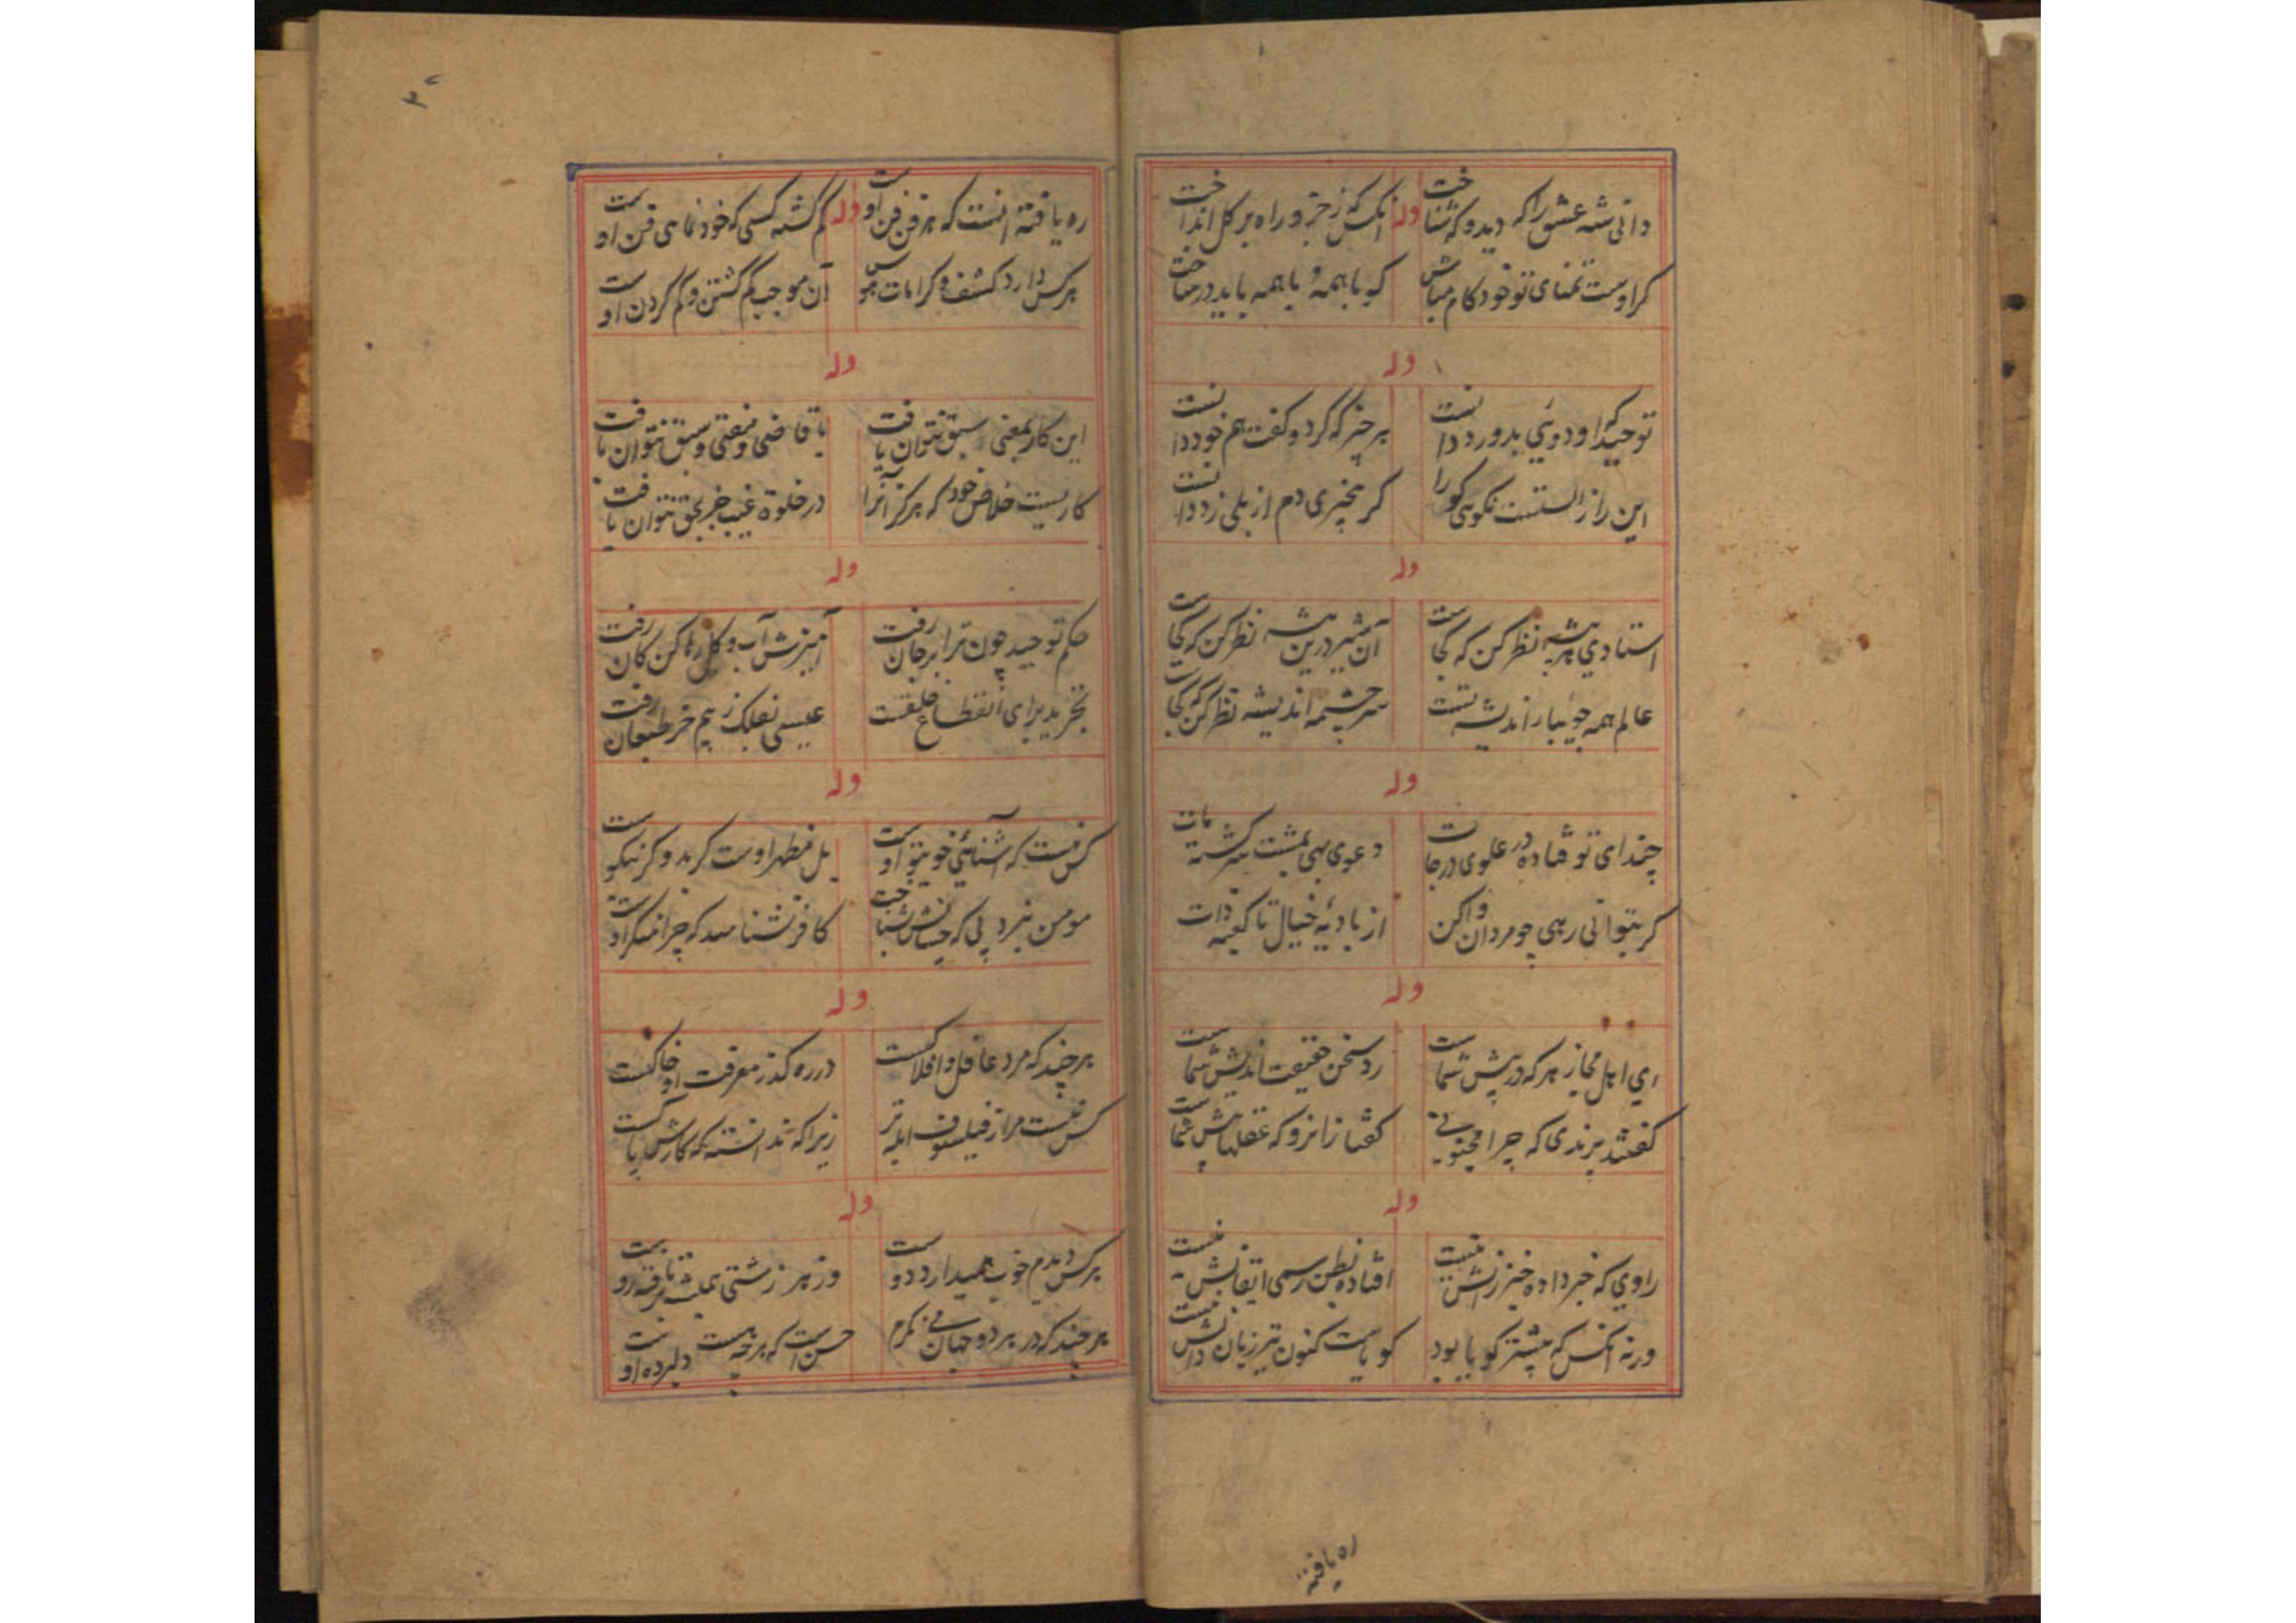 دانی شه عشق را که دید و که شناخت
وله
آنکس که ز جزو راه بر کل انداخت
کر اوست تمنای تو خود کام مباش
که با همه و با همه باید در ساخت
وله
توحید که او دوئی بدور دانست
هر چیز که کرد و گفت هم خود دانست
این راز الست نکوهی کو را
کر بیخبری دم از بلی زد دانست
وله
استاد بهر پیشه نظر کن که کجاست
آن شیر درین بیشه نظر کن که کجاست
عالم همه جویبار اندیشه تست
سرچشمه اندیشه نظر کن که کجاست
وله
چندای تو فتاده در علوی درجات
دعوی بهی بهشت سرگشته مات
کر بتوانی رهی چو مردان واکن
از بادیه خیال تا کعبه ذات
وله
ای اهل مجاز هر که درپیش شماست
رد سخن حقیقت اندیش شماست
گفتند برندی که چرا مجنونی
گفتا زانرو که عقلها پیش شماست
وله
راوی که خبر داده خبر زانش نیست
افتاده بظن رسمی ایقانش نیست
ورنه آنکس که پیشتر گویا بود
گویاست کنون تیز زبان دانش نیست
ره یافته
۳۲
ره یافته آنست که هر فن فن اوست
وله
گم گشته کسی که خودنمایی فن اوست
هرکس دارد کشف و کرامات هوس
آن موجب گم گشتن و گم کردن اوست
وله
این کار بمعنی سبق نتوان یافت
با قاضی و مفتی و سبق نتوان یافت
کاریست خلاص خود که هرگز آنرا
در خلوة غیب جز بحق نتوان یافت
وله
حکم توحید چون ترا بر جان رفت
آمیزش آب و گل رها کن کان رفت
تجرید برای انقطاع خلقست
عیسی بفلک ز بیم خر طبعان رفت
وله
کس نیست که آشنائی خویتو اوست
بل مظهر اوست کر بد و کر نیکوست
مومن نبرد پی که چسانش شناخت
کافر نشناسد که چرا منکر اوست
وله
هر چند که مرد عاقل و افلاکیست
در ره گذر معرفت او خاکیست
کس نیست مر از فیلسوف ابله تر
زیرا که ندانسته که کارش با کیست
وله
هرکس دیدم خوب همیدارد دوست
وز هر زشتی همیشه برتافته روست
هر چند که در هر دو جهان می نگرم
حسن است که هر چه هست دلبرده اوست